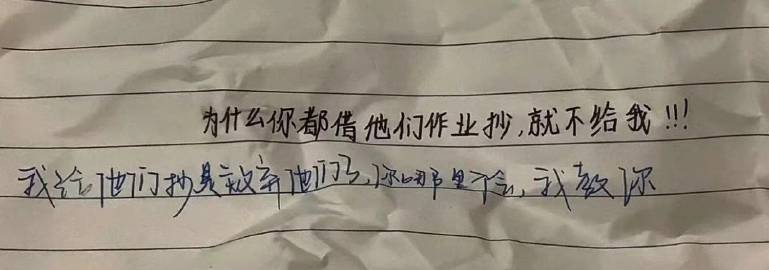 为什么你都借他们作业抄,就不给我!!!
我给他们抄是放弃他们了,你哪里不会,我教你